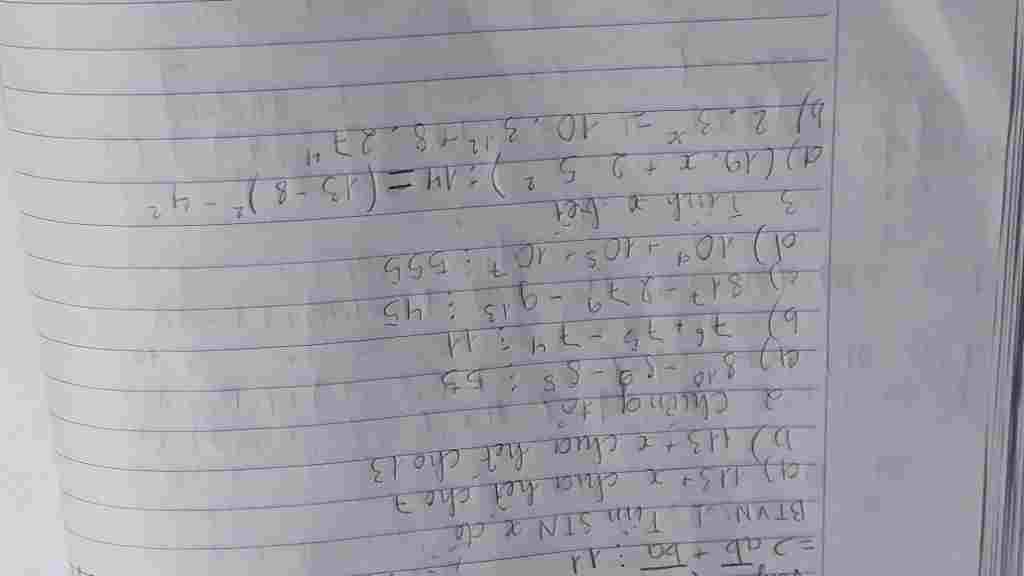 = > ab + ba ⋮ 11
BTVN: 1 Tìm STN x để
a) 113 + x chia hết cho 7
b) 113 + x chia hết cho 13
2 chứng tỏ:
a) 8¹⁰ - 8⁹ - 8⁸ ⋮ 55
b) 7⁶ + 7⁵ - 7⁴ ⋮ 11
c) 81⁷ - 27⁹ - 9¹³ ⋮ 45
d) 10⁹ + 10⁸ + 10⁷ ⋮ 555
3 Tính x biết
a) (19. x + 2 5²) : 14 = (13 - 8)² - 4²
b) 2. 3ˣ = 10. 3¹² + 8. 27⁴